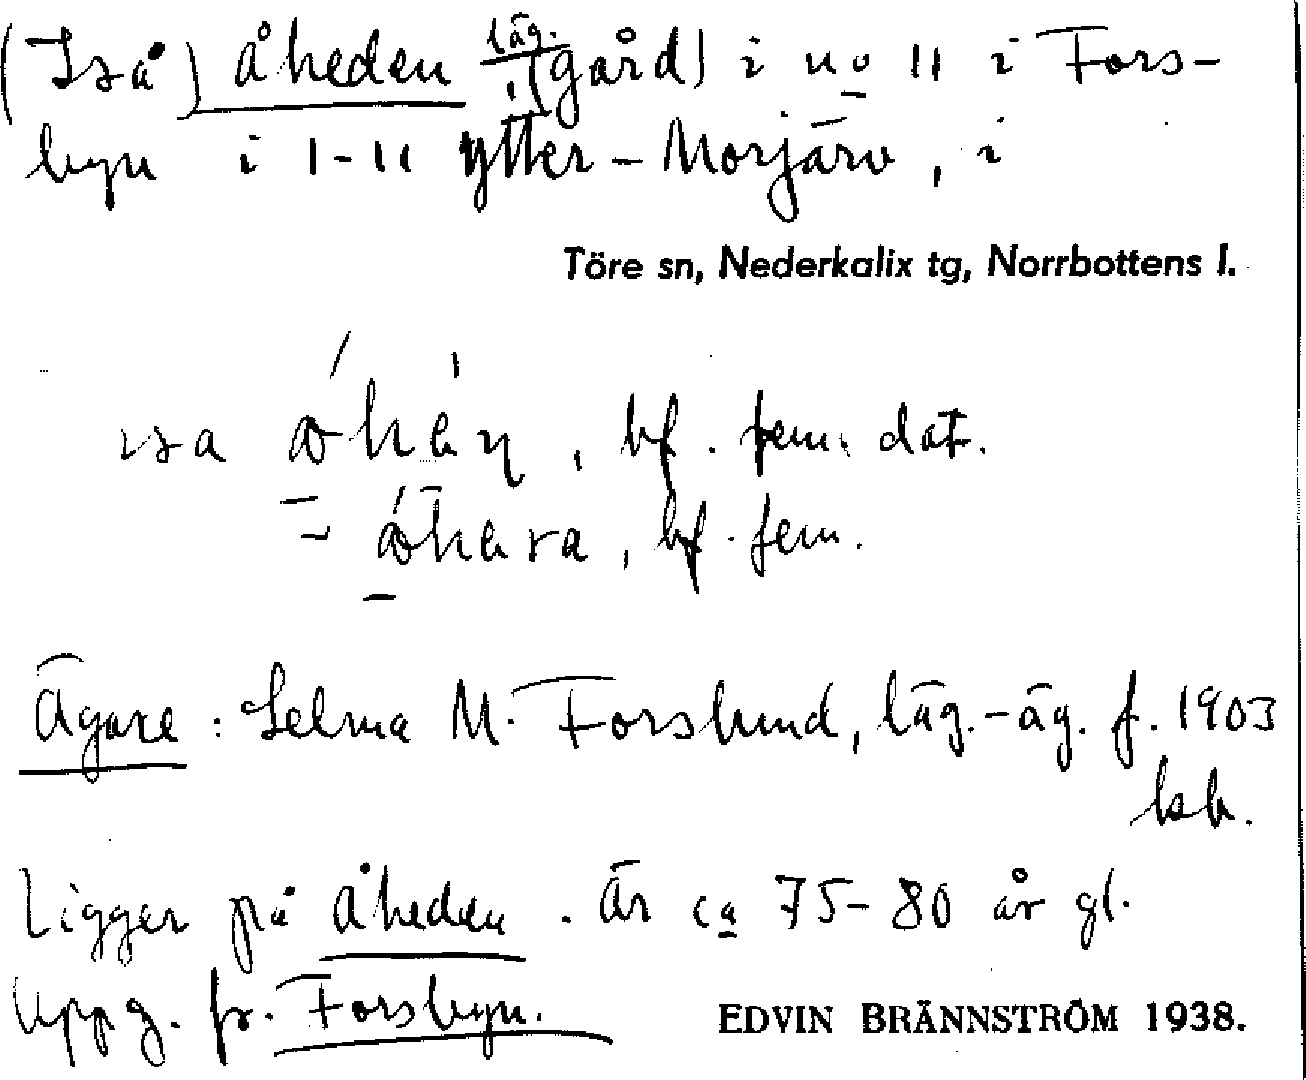 (Iså) Åheden läg. (gård) i no 11 i Fors-
byn i 1-11 Ytter-Morjärv, i
Töre sn, Nederkalix tg, Norrbottens l.
bf. fem. dat.
bf. fem.
Ägare: Selma M. Forslund, läg.-äg. f. 1903
Ligger på Åheden. Är ca 75-80 år gl.
Uppg. fr. Forsbyn.
EDVIN BRÄNNSTRÖM 1938.